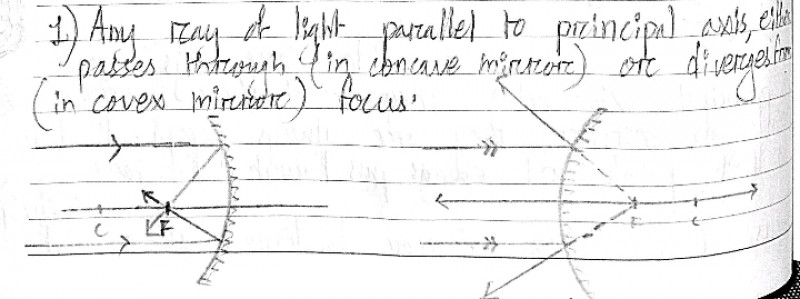 1) Any ray of light parallel to principal axis, either
passes through (in concave mirror) or diverges from
(in covex mirror) focus.
C F F C